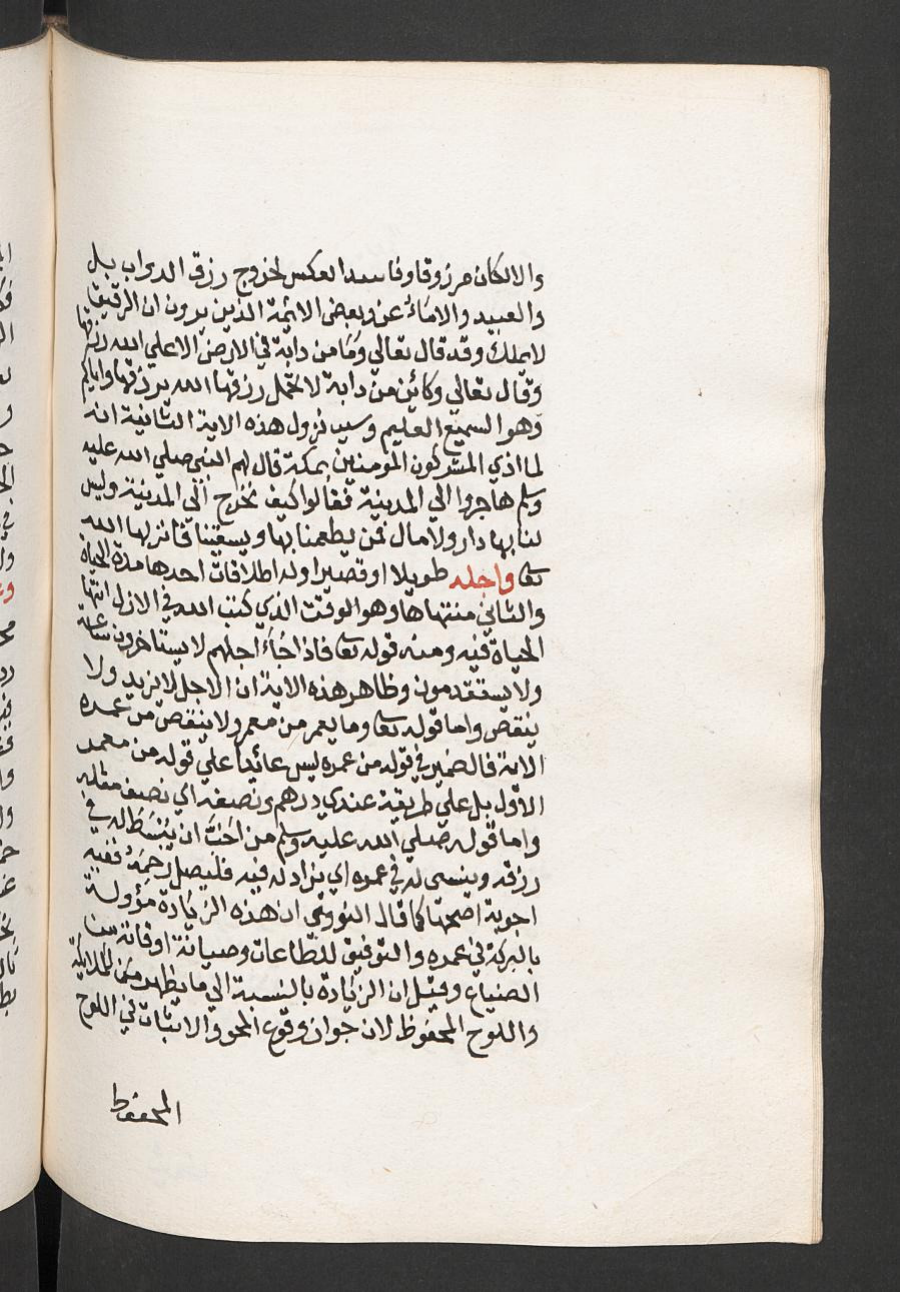 والالكان مرزوقا وفاسد العكس لخروج رزق الدواب بل
والعبيد والاماء عن وبعض الايمة الذين يرون ان الرقيق
لا يملك وقد قال تعالي وما من دابة في الارض الا علي الله رزقها
وقال تعالي وكائن من دابة لا تحمل رزقها الله يرزقها واياكم
وهو السميع العليم وسبب نزول هذه الاية الثانية انه
لما اذي المشركون المومنين بمكة قال لهم النبي صلي الله عليه
وسلم هاجروا الي المدينة فقالوا كيف نخرج الي المدينة وليس
لنا بها دار ولا مال فمن يطعمنا بها ويسقينا فانزلها الله
تعا واجله طويلا او قصيرا وله اطلاقات احدها مدة الحياة
والثاني منتهاها وهو الوقت الذي كتب الله في الازل انتها
الحياة فيه ومنه قوله تعا فاذا جاء اجلهم لا يستاخرون ساعة
ولا يستقدمون وظاهر هذه الاية ان الاجل لا يزيد ولا
ينقص واما قوله تعا وما يعمر من معمر ولا ينقص من عمره
الاية فالضمير في قوله من عمره ليس عائدا علي قوله من معمر
الاول بل علي طريقة عندي درهم ونصفه اي نصف مثله
واما قوله صلي الله عليه وسلم من احب ان يبسط له في
رزقه وينسي له في عمره اي يزاد له فيه فليصل رحمه ففيه
اجوبة اصحها كما قال النووي ان هذه الزيادة مؤولة
بالبركة في عمره والتوفيق للطاعات وصيانة اوقاته من
الضياع وقيل ان الزيادة بالنسبة الي ما يظهر للملائكة
واللوح المحفوظ لان جواز وقوع المحو والاثبات في اللوح
المحفوظ